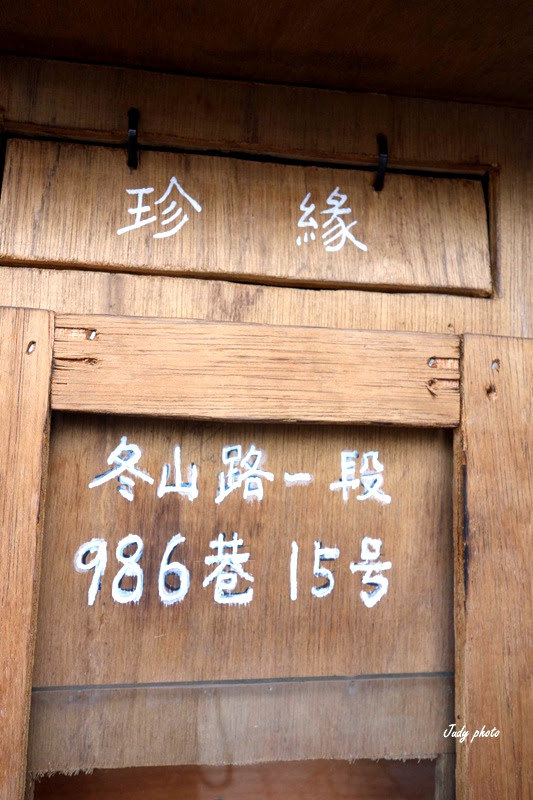 珍緣
冬山路一段
986巷15号
Judy photo